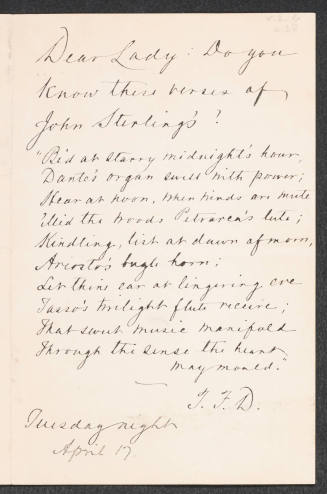 Dear Lady: Do you
know these verses of
John Sterling's?
"Bid at starry midnight's hour,
Dante's organ swell with power;
Hear at noon, when winds are mute
'Mid the woods Petrarca's lute;
Kindling, list at dawn of morn,
Ariosto's bugle horn;
Let thine ear at lingering eve
Tasso's twilight flute receive;
That sweet music manifold
Through the sense the heart
may mould."
T. F. D.
Tuesday night
April 17